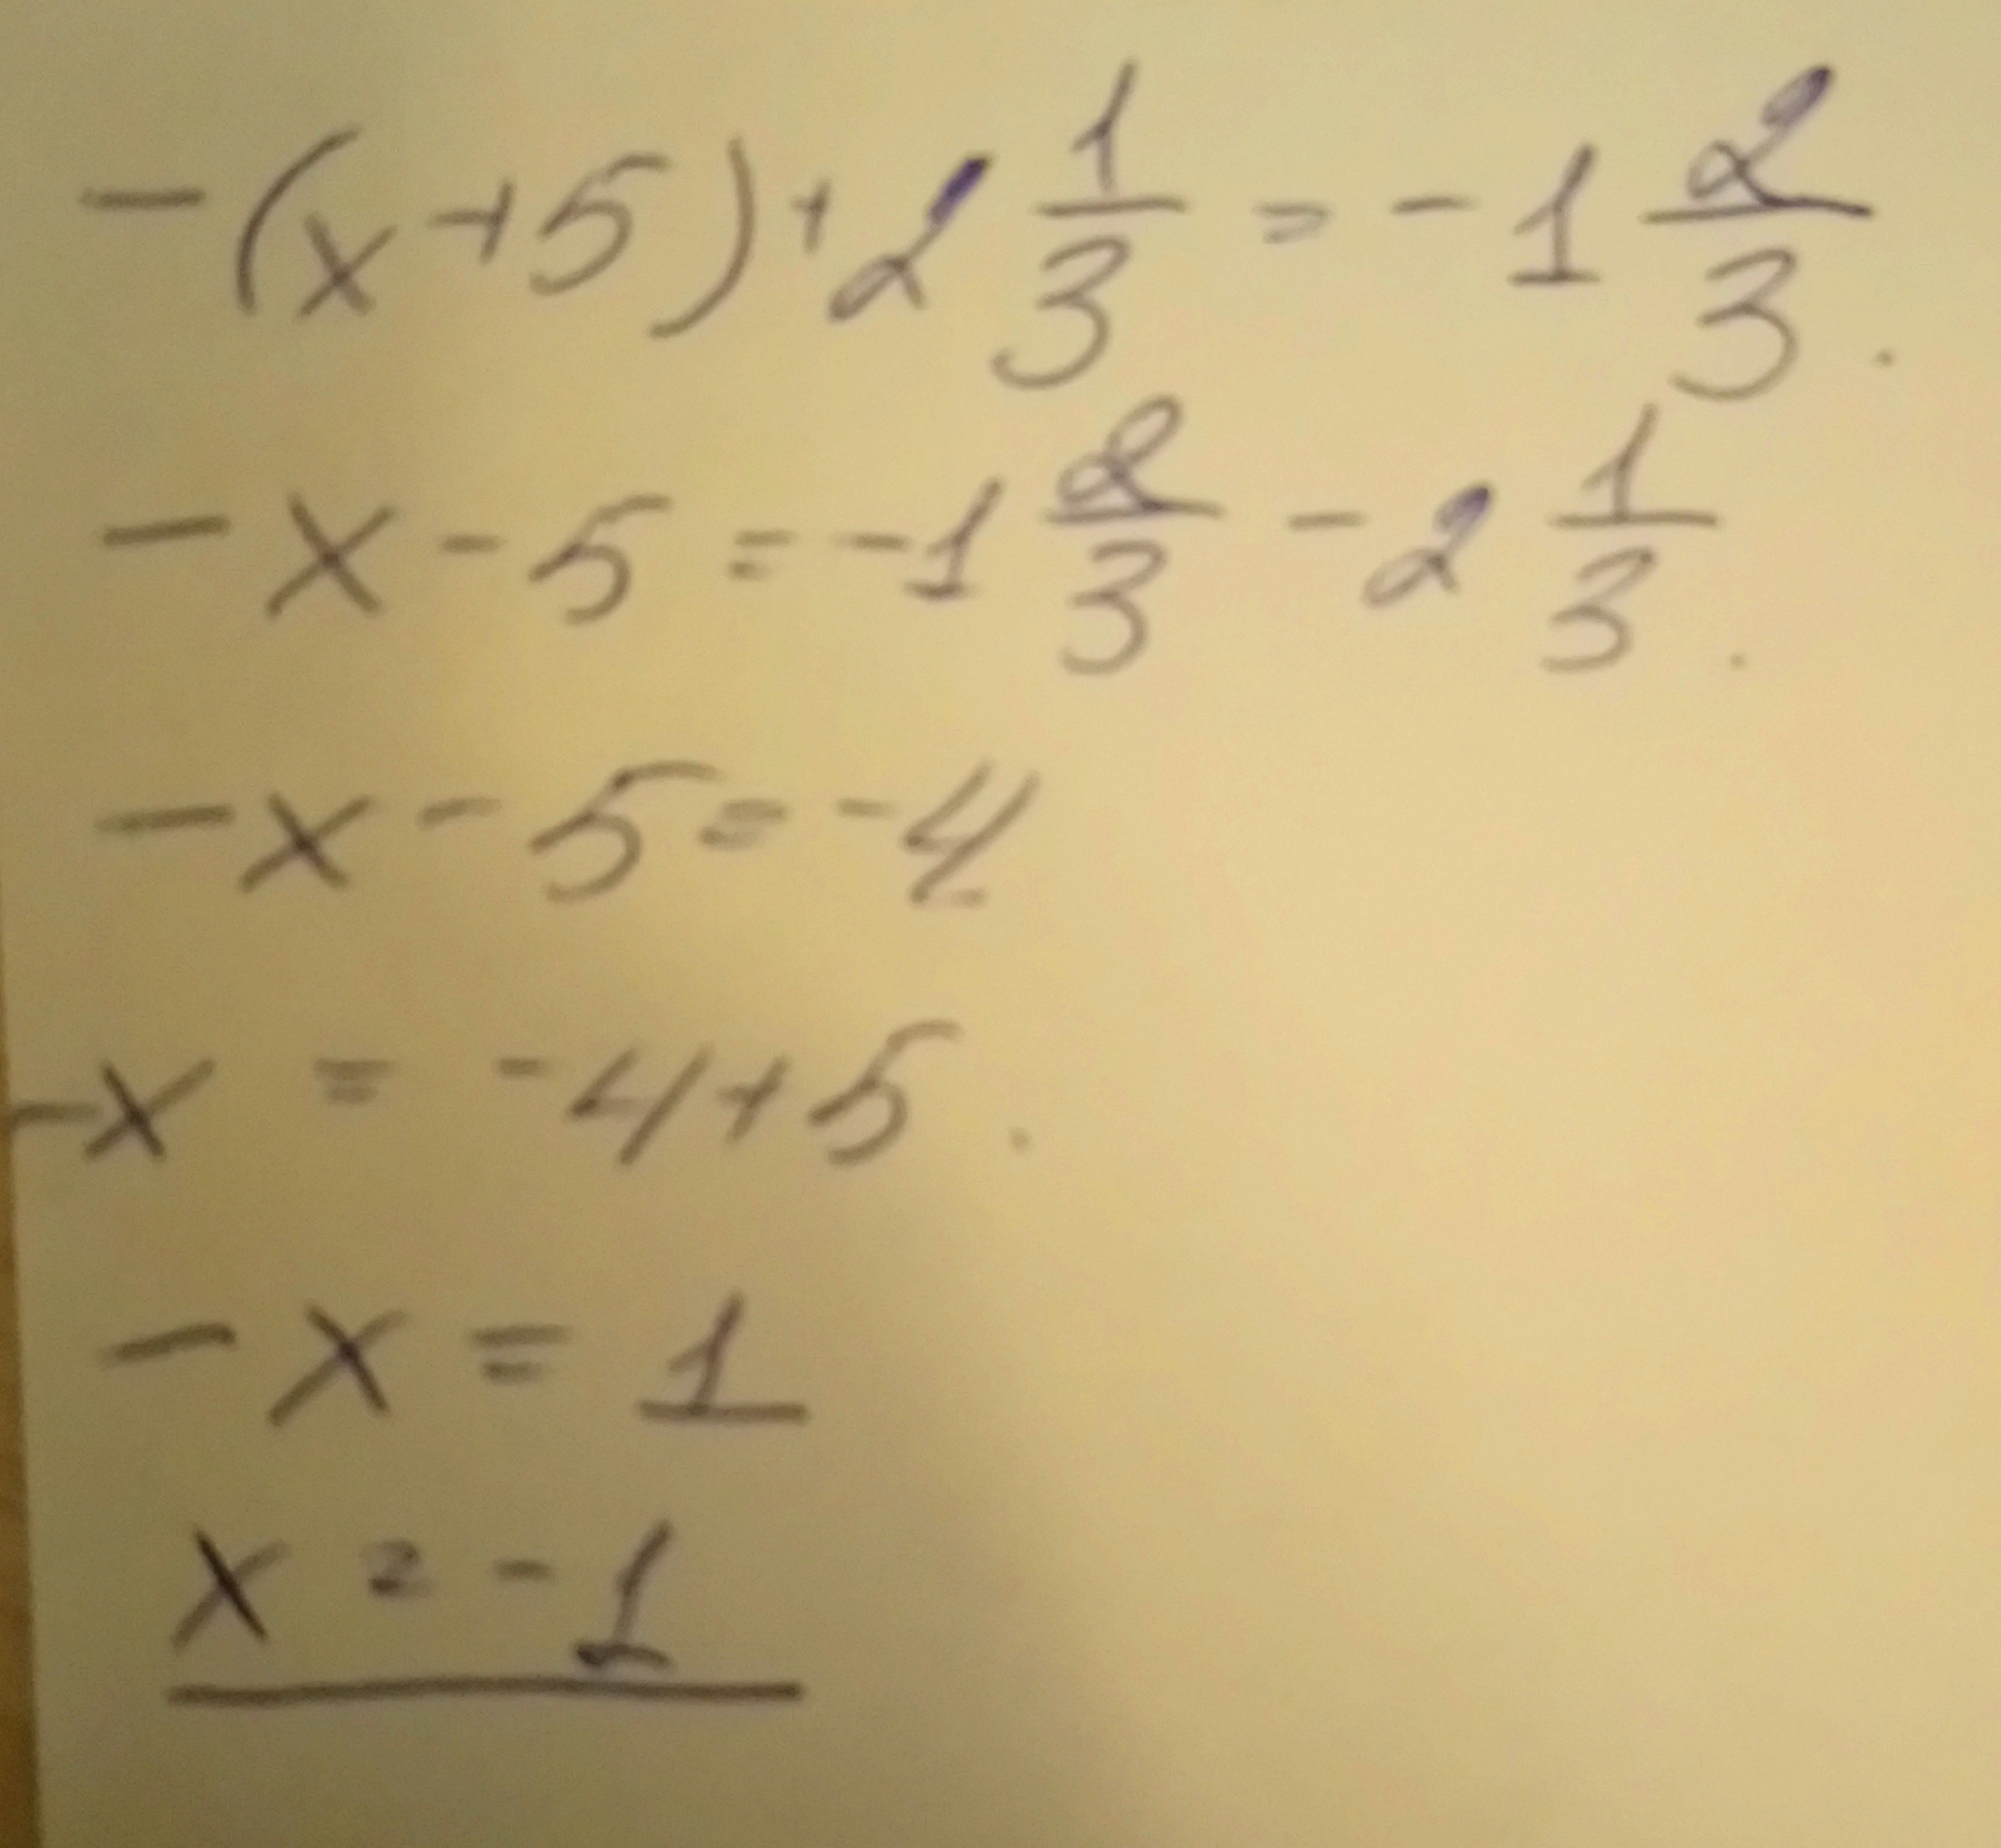 -(x+5)+2 1/3 = -1 2/3.
-x-5=-1 2/3 - 2 1/3.
-x-5=-4
-x = -4+5.
-x = 1
x = -1